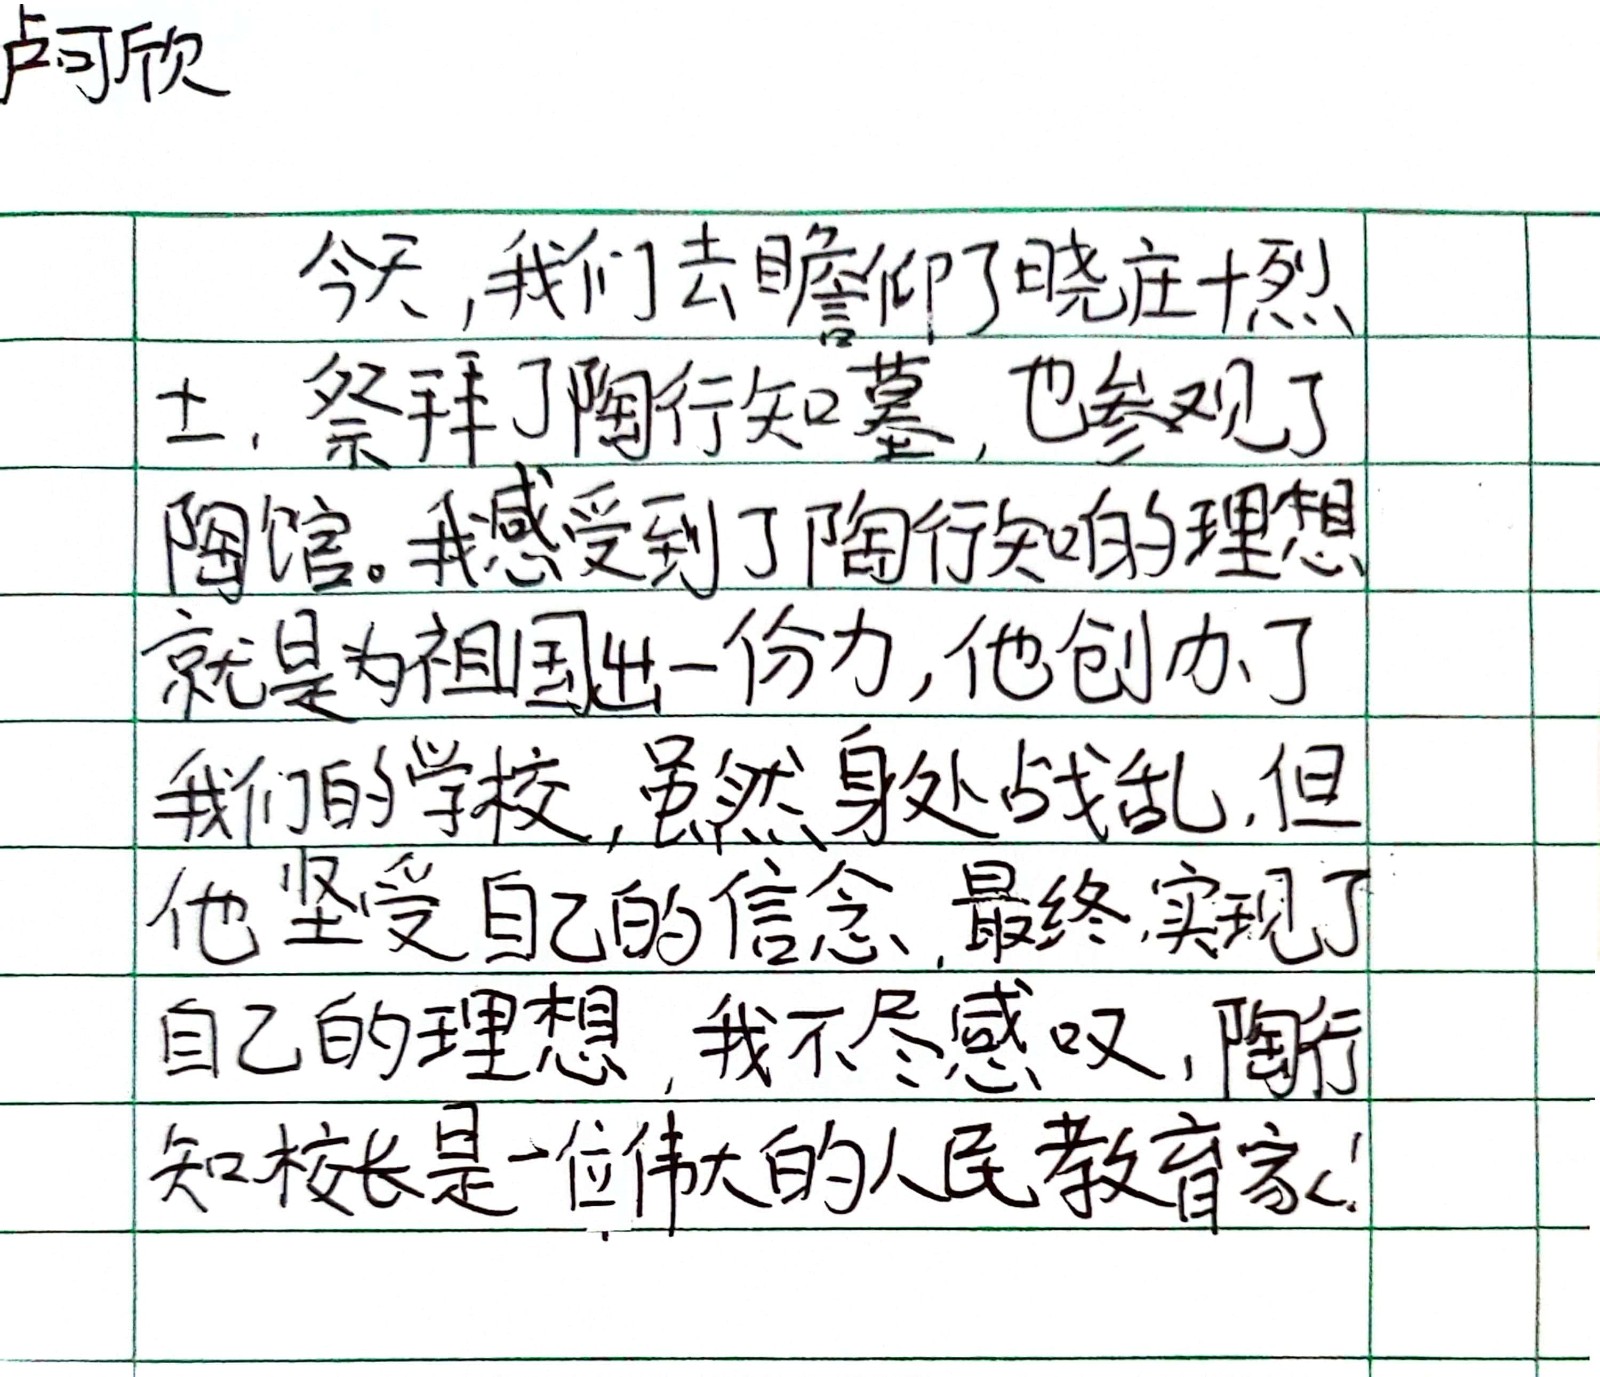 卢可欣
今天,我们去瞻仰了晓庄十烈
士,祭拜了陶行知墓,也参观了
陶馆。我感受到了陶行知的理想
就是为祖国出一份力,他创办了
我们的学校,虽然身处战乱,但
他坚受自己的信念,最终实现了
自己的理想,我不尽感叹,陶行
知校长是一位伟大的人民教育家!